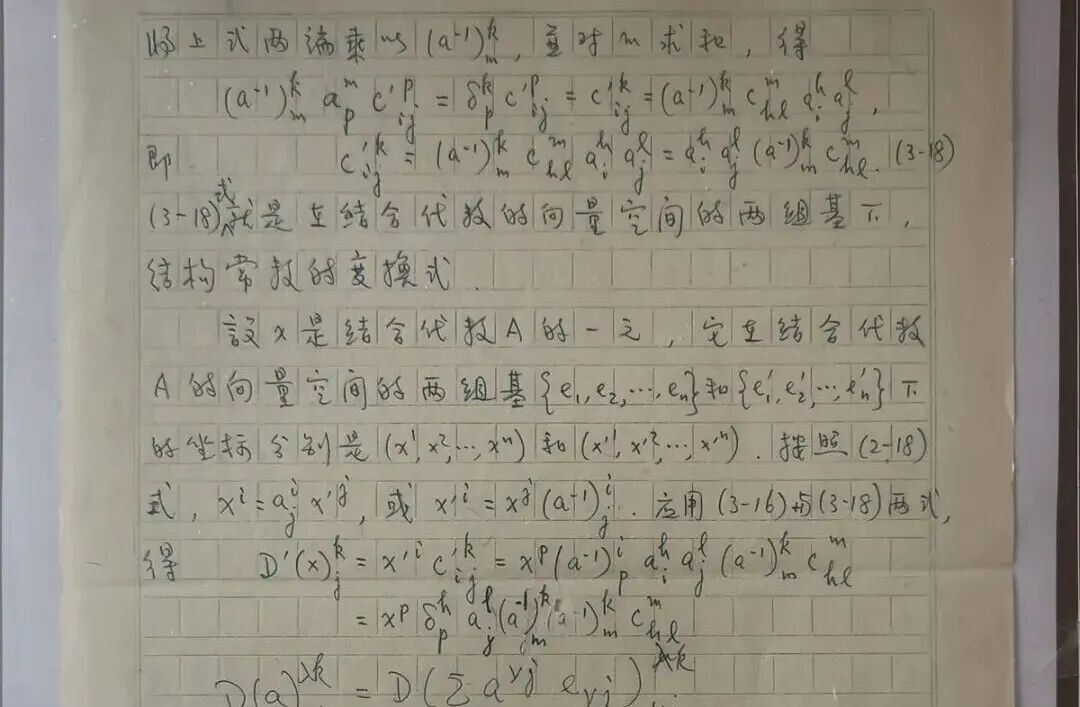 将上式两端乘以 (a⁻¹)ᵏₘ, 並对 m 求和, 得
(a⁻¹)ᵏₘ aᵐₚ c'ᵖᵢⱼ = δᵏₚ c'ᵖᵢⱼ = c'ᵏᵢⱼ = (a⁻¹)ᵏₘ cᵐₕₗ aʰᵢ aˡⱼ,
即 c'ᵏᵢⱼ = (a⁻¹)ᵏₘ cᵐₕₗ aʰᵢ aˡⱼ = aʰᵢ aˡⱼ (a⁻¹)ᵏₘ cᵐₕₗ. (3-18)
(3-18)式就是在结合代数的向量空间的两组基下,
结构常数的变换式.
設 x 是结合代数 A 的一元, 它在结合代数
A 的向量空间的两组基{e₁, e₂, …, eₙ}和{e'₁, e'₂, …, e'ₙ}下
的坐标分别是(x¹, x², …, xⁿ)和(x'¹, x'², …, x'ⁿ). 按照(2-18)
式, xⁱ = aⁱⱼ x'ʲ, 或 x'ⁱ = xʲ(a⁻¹)ⁱⱼ. 应用(3-16)与(3-18)两式,
得 D'(x)ᵏⱼ = x'ⁱ c'ᵏᵢⱼ = xᵖ(a⁻¹)ⁱₚ aʰᵢ aˡⱼ (a⁻¹)ᵏₘ cᵐₕₗ
= xᵖ δʰₚ aˡⱼ (a⁻¹)ᵏₘ (a⁻¹)ᵏₘ cᵐₕₗ
D(a) = D(Σ a